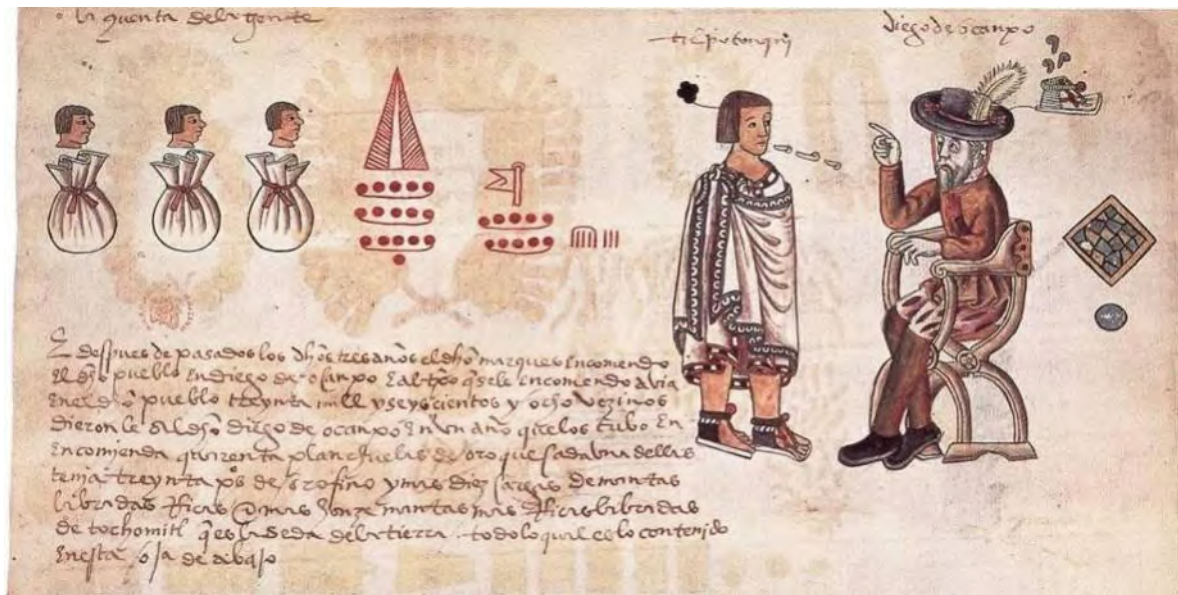 la quenta dela gente
tecpotonqui
diego de ocanpo
E despues de pasados los dhos tres años el dho marques encomendo
el dho pueblo en diego de ocanpo e al tpo q se le encomendo avia
en el dho pueblo treynta mill y seyscientos y ocho vezinos
dieron le al dho diego de ocanpo en un año que los tubo en
encomienda quarenta planchuelas de oro que cada una dellas
tenia treynta ps de oro fino y mas diez cargas de mantas
libradas Ricas mas honze mantas mas Ricas libradas
de tochomitl q es la seda dela tierra todo lo qual es lo contenido
en esta oja de abajo